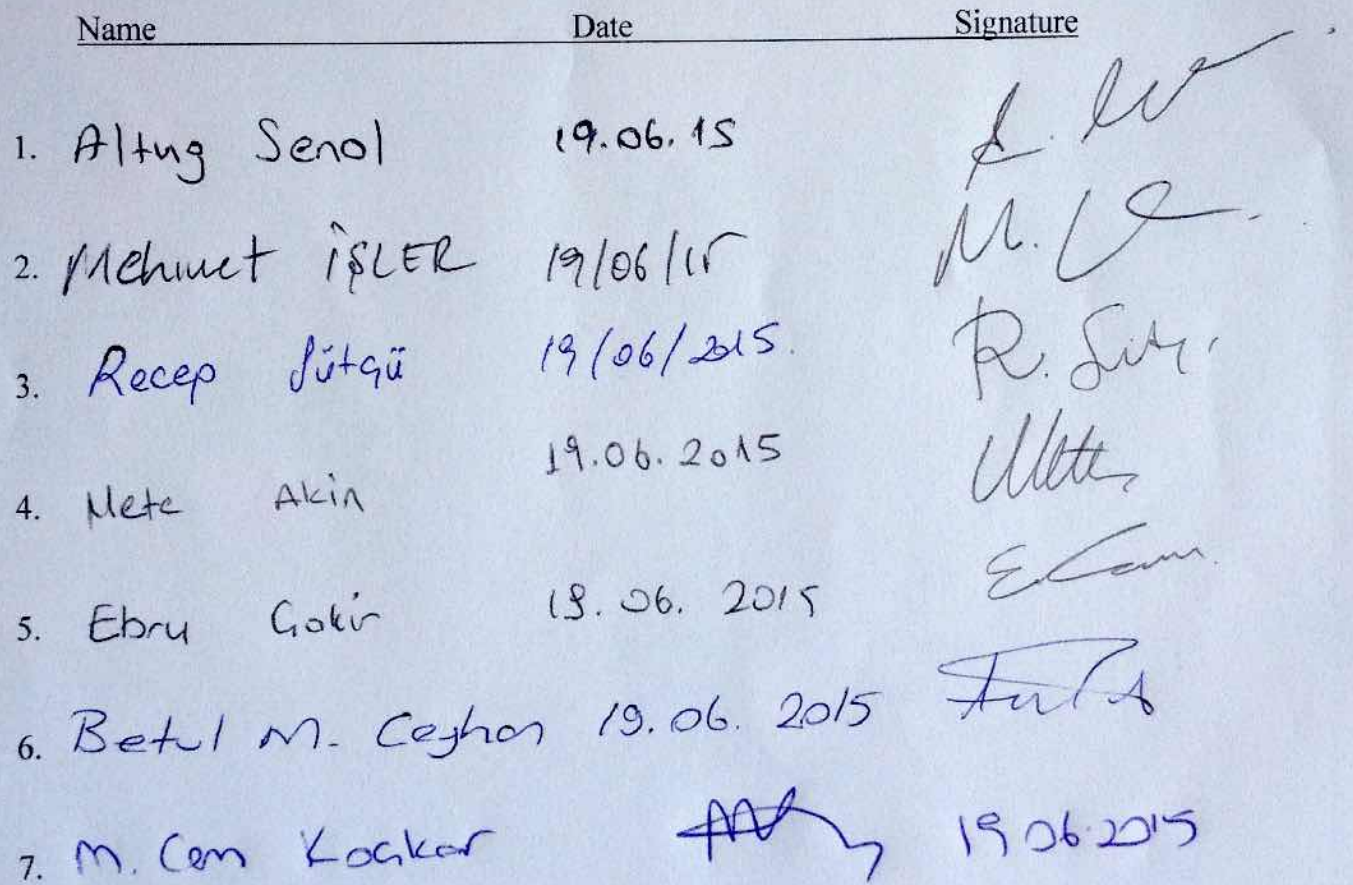 Name Date Signature
1. Altug Senol 19.06.15
2. Mehmet İŞLER 19/06/15
3. Recep Sütçü 19/06/2015. R.
4. Mete Akin 19.06.2015 Mete
5. Ebru 19.06. 2015
6. Betul M. Ceyhan 19.06. 2015
7. M. Cem Kocakar 19 06.2015